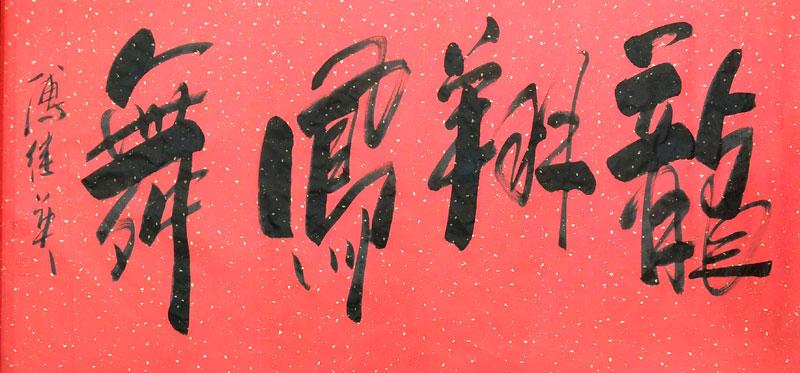 龍翔鳳舞
傅佳華